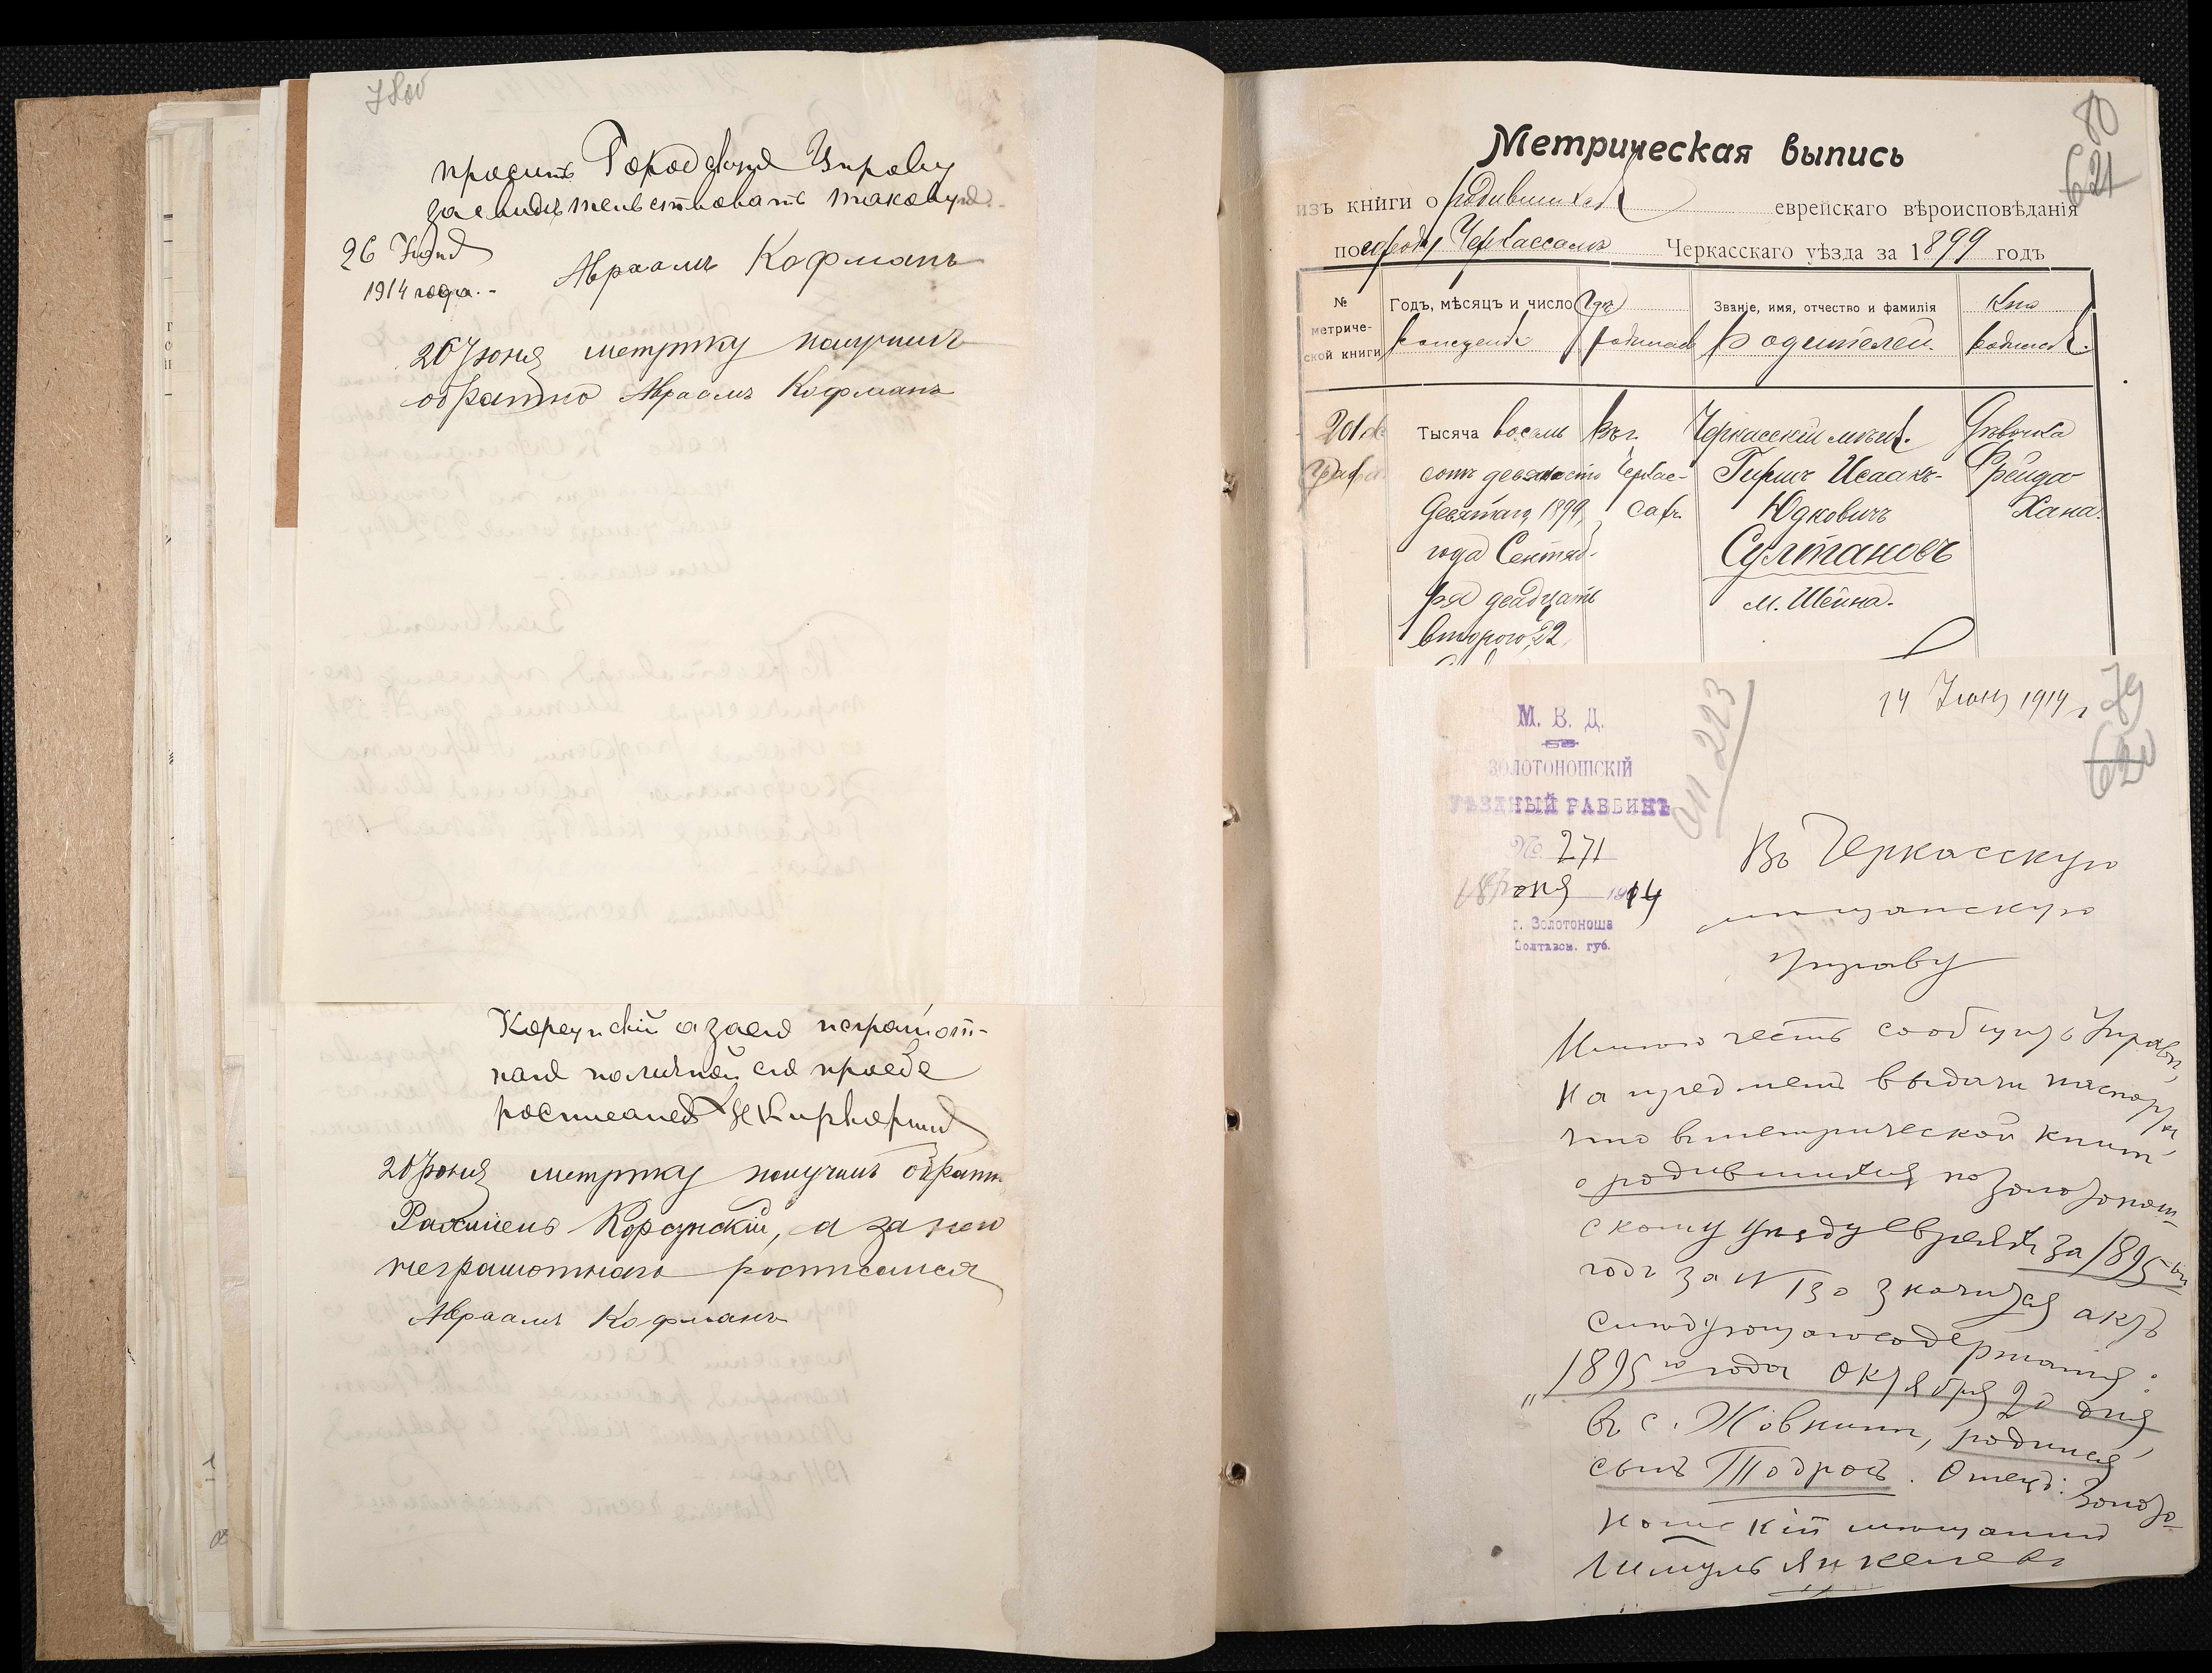 78об
просить Городскую Управу
засвидѣтельствовать таковую.
26 Іюня
1914 года.-
Авраамъ Кофманъ
26 Іюня метрику получилъ
обратно Авраамъ Кофманъ
Корсунскій а за него неграмот-
наго по личной его просьбе
росписался
26 Іюня метрику получилъ обратно
Рахмиель Корсунскій, а за него
неграмотнаго росписался
Авраамъ Кофманъ
80
621
Метрическая выпись
изъ книги о родившихся еврейскаго вѣроисповѣданія
по городу Черкассамъ Черкасскаго уѣзда за 1899 годъ
№ метриче-
ской книги
Годъ, мѣсяцъ и число
рожденія
Гдѣ
родился
Званіе, имя, отчество и фамилія
родителей.
Кто
родился.
201
Тысяча восемь
сотъ девяносто
девятаго 1899
года Сентяб-
ря двадцать
второго 22
Въ г.
Черкас-
сахъ
Черкасскій мѣщ.
Гиршъ Исаакъ-
Юдковичъ
Султановъ
м. Шейна.
Дѣвочка
Фрейда
Хана.
14 Іюня 1914 г
79
620
М. В. Д.
ЗОЛОТОНОШСКІЙ
УѢЗДНЫЙ РАВВИНЪ
№ 271
18 Іюня 1914
г. Золотоноша
Полтавск. губ.
223
Въ Черкасскую
мѣщанскую
управу
Имѣю честь сообщить Управѣ,
на предметъ выдачи паспорта,
что въ метрической книгѣ
о родившихся по Золотонош-
скому уѣзду евреяхъ за 1895-ый
годъ за № 130 значится актъ
слѣдующаго содержанія:
„1895 го года октября 20 дня
въ с. Жовнинѣ, родился
сынъ Тодросъ. Отецъ: Золото-
ношскій мѣщанинъ
Янкелевъ